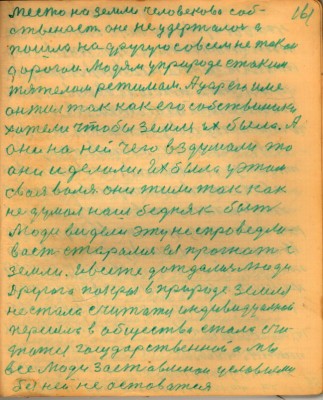 161
место на земли человеково соб-
ственост оне не удержалос а
пошло на другую совсем не такой
дорогой людям уприроде стаким
тяжелым режимам. А дарение
он жил так как его собственики
хатели чтобы земля их была. А
они на ней чего вздумали то
они и делоли. Их была у этим
своя воля. они жили так как
не думал наш бедняк быт
Люди видели эту неспроведло-
вост старалися прогнат с
земли. И всеже дотдалися люди
другого поворота в природе Земля
не стала считатся индивидуалной
перешла в общество стала счи-
татся государственной а мы
все люди заставленой условиями
без ней не остоватся